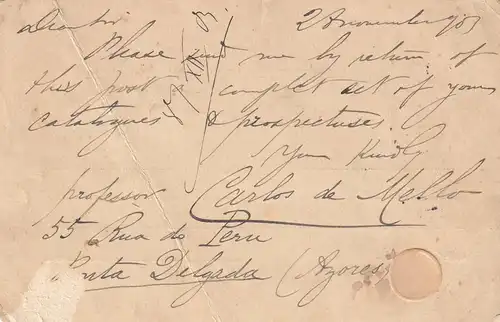 Dear Sir 2 November 905
Please send me by return of
this post complet set of yours
catalogues & prospectuses.
Your Kindly
professor Carlos de Mello
55 Rua do Peru
Ponta Delgada (Azores)